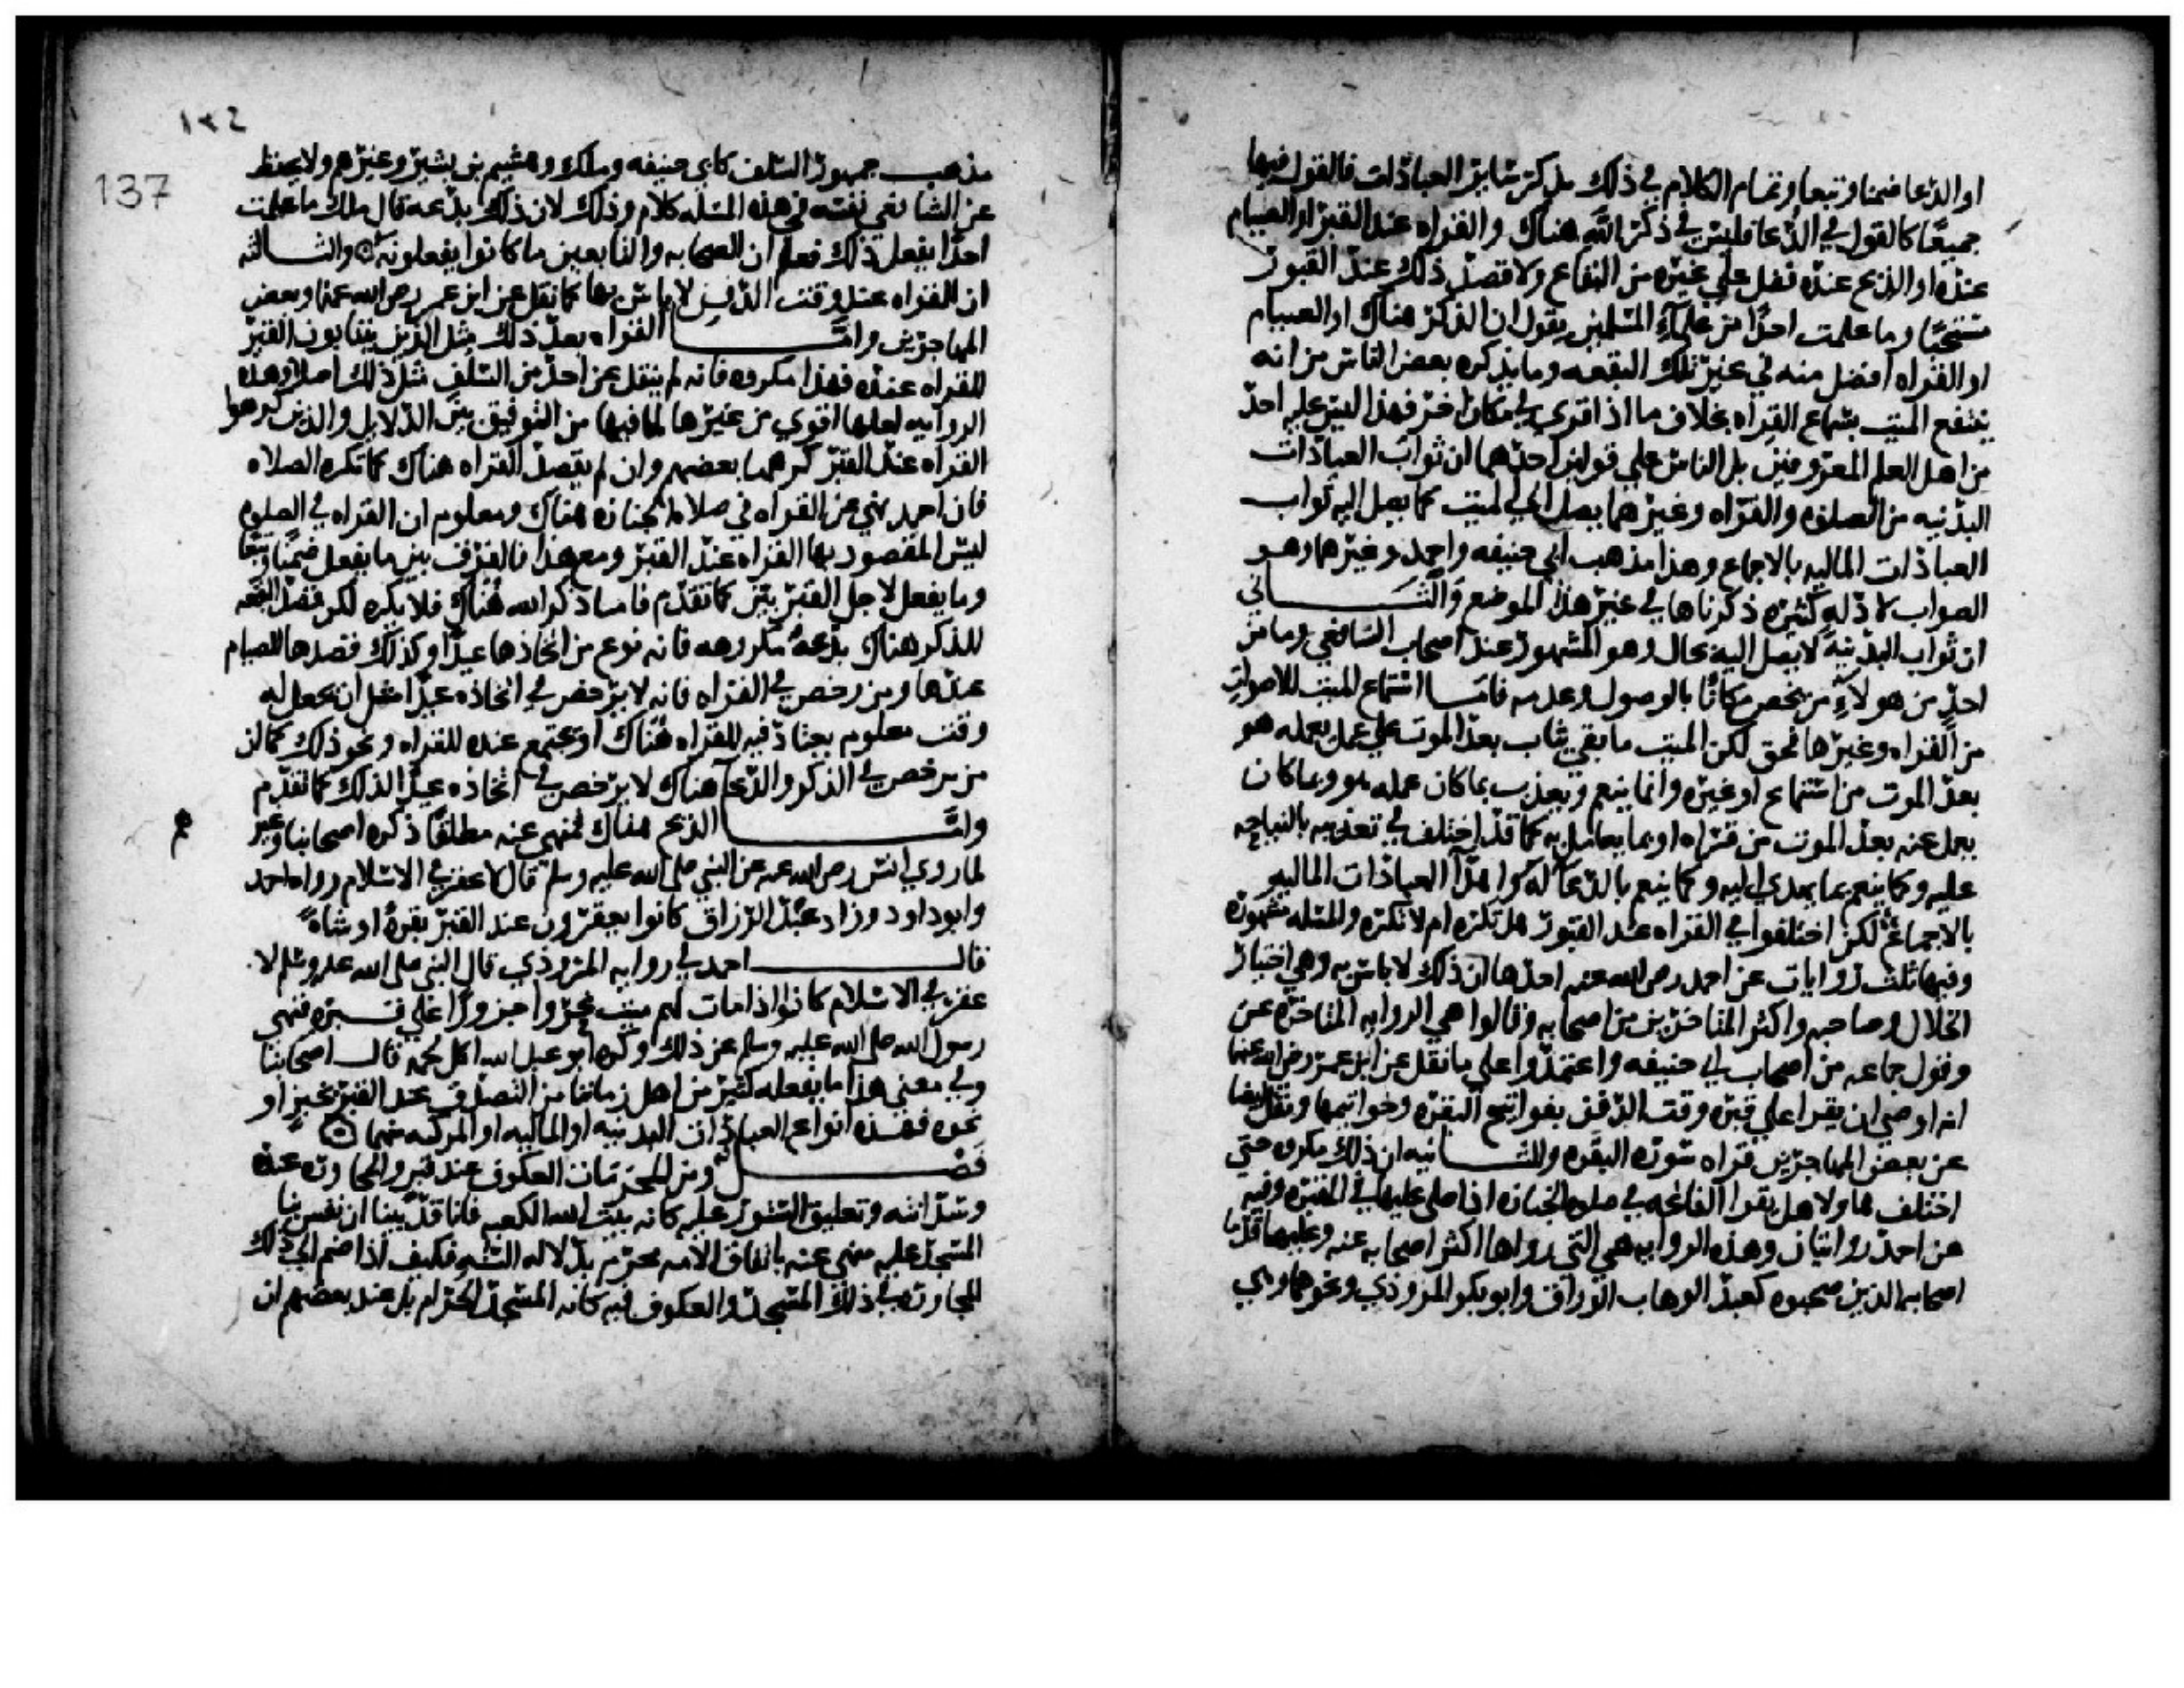 او الدعا ضمنا وتبعا وتمام الكلام في ذلك بذكر ساير العبادات فالقول فيها
جميعا كالقول في الدعا فليس في ذكر الله هناك والقراه عند القبر او الصيام
عنده او الذبح عنده فضل علي غيره من البقاع ولا قصد ذلك عند القبور
مستحبا وما علمت احدا من علماء المسلمين يقول ان الذكر هناك او الصيام
او القراه افضل منه في غير تلك البقعه وما يذكره بعض الناس من انه
ينتفع الميت بسماع القراه بخلاف ما اذا قري في مكان اخر فهذا ليس عليه احد
من اهل العلم المعروفين بل الناس علي قولين احدهما ان ثواب العبادات
البدنيه من الصلاه والقراه وغيرهما يصل الي الميت كما يصل اليه ثواب
العبادات الماليه بالاجماع وهذا مذهب ابي حنيفه واحمد وغيرهما وهو
الصواب لادله كثيره ذكرناها في غير هذا الموضع والثاني
ان ثواب البدنيه لا يصل اليه بحال وهو المشهور عند اصحاب الشافعي وما من
احد من هولاء من يخص مكانا بالوصول وعدمه فاما استماع الميت للاصوات
من القراه وغيرها فحق لكن الميت ما بقي يثاب بعد الموت علي عمل يعمله هو
بعد الموت من استماع او غيره وانما ينعم ويعذب بما كان عمله هو وبما كان
يعمل عنه بعد الموت من قراه او بما يعامل به كما قد اختلف في تعذيبه بالنياحه
عليه وكما ينعم بما يهدي اليه وكما ينعم بالدعا له واهدا العبادات الماليه
بالاجماع لكن اختلفوا في القراه عند القبور هل تكره ام لا تكره والمسله مشهوره
وفيها ثلث روايات عن احمد رضي الله عنه احدها ان ذلك لا باس به وهي اختيار
الخلال وصاحبه واكثر المتاخرين من اصحابه وقالوا هي الروايه المتاخره عن
وقول جماعه من اصحاب ابي حنيفه واعتمدوا علي ما نقل عن ابن عمر رضي الله عنهما
انه اوصي ان يقرا علي قبره وقت الدفن بفواتيح البقره وخواتيمها ونقل ايضا
عن بعض المهاجرين قراه سوره البقره والثانيه ان ذلك مكروه حتي
اختلف هاولا هل يقرا الفاتحه في صلاه الجنازه اذا صلي عليها في المقبره وفيه
عن احمد روايتان وهذه الروايه هي التي رواها اكثر اصحابه عنه وعليها قدما
اصحابه الذين صحبوه كعبد الوهاب الوراق وابو بكر المروذي ونحوهما وهي
١٣٢
137
مذهب جمهور السلف كابي حنيفه وملك وهشيم بن بشير وغيرهم ولا يحفظ
عن الشافعي نفسه في هذه المسله كلام وذلك لان ذلك بدعه قال ملك ما علمت
احدا يفعل ذلك فعلم ان الصحابه والتابعين ما كانوا يفعلونه والثالثه
ان القراه عند وقت الدفن لا باس بها كما نقل عن ابن عمر رضي الله عنهما وبعض
المهاجرين واما القراه بعد ذلك مثل الذين ينتابون القبر
للقراه عنده فهذا مكروه فانه لم ينقل عن احد من السلف مثل ذلك اصلا وهذه
الروايه لعلها اقوي من غيرها لما فيها من التوفيق بين الدلايل والذين كرهوا
القراه عند القبر كرهها بعضهم وان لم يقصد القراه هناك كما تكره الصلاه
فان احمد نهي عن القراه في صلاه الجنازه هناك ومعلوم ان القراه في الصلوه
ليس المقصود بها القراه عند القبر ومع هذا فالفرق بين ما يفعل ضمنا وتبعا
وما يفعل لاجل القبر بين كما تقدم فاما ذكر الله هناك فلا يكره لكن قصد البقعه
للذكر هناك بدعه مكروهه فانه نوع من اتخاذها عيدا وكذلك قصدها للصيام
عندها ومن رخص في القراه فانه لا يرخص في اتخاذه عيدا مثل ان يجعل له
وقت معلوم يعتاد فيه للقراه هناك او يجتمع عنده للقراه ونحو ذلك كما ان
من يرخص في الذكر والدعا هناك لا يرخص في اتخاذه عيدا لذلك كما تقدم
واما الذبح هناك فمنهي عنه مطلقا ذكره اصحابنا وغير
هم
لما روي انس رضي الله عنه عن النبي صلي الله عليه وسلم قال لا عقر في الاسلام رواه احمد
وابو داود وزاد عبد الرزاق كانوا يعقرون عند القبر بقره او شاه
قال احمد في روايه المروذي قال النبي صلي الله عليه وسلم لا
عقر في الاسلام كانوا اذا مات لهم ميت نحروا جزورا علي قبره فنهي
رسول الله صلي الله عليه وسلم عن ذلك وكره ابو عبد الله اكل لحمه قال اصحابنا
وفي معني هذا ما يفعله كثير من اهل زماننا من التصدق عند القبر بخبز او
نحوه فهذه انواع العبادات البدنيه او الماليه او المركبه منهما
فصل ومن المحرمات العكوف عند قبر والمجاوره عنده
وسدانته وتعليق الستور عليه كانه بيت الله الكعبه فانا قد بينا ان نفس بنا
المسجد عليه منهي عنه باتفاق الامه محرم بدلاله السنه فكيف اذا ضم الي ذلك
المجاوره في ذلك المسجد والعكوف فيه كانه المسجد الحرام بل عند بعضهم ان